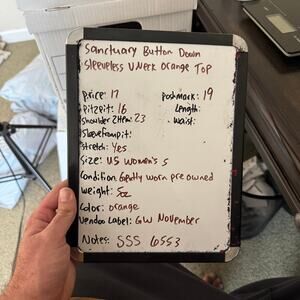 Sanctuary Button Down
Sleeveless V Neck Orange Top
Price: 17 Poshmark: 19
Pit2pit: 16 Length:
Shoulder 2 Hem: 23 Waist:
Sleeve from pit:
Stretch: Yes
Size: US Women's S
Condition: Gently worn pre owned
Weight: 5oz
Color: orange
Vendoo Label: GW November
Notes: SSS 6553